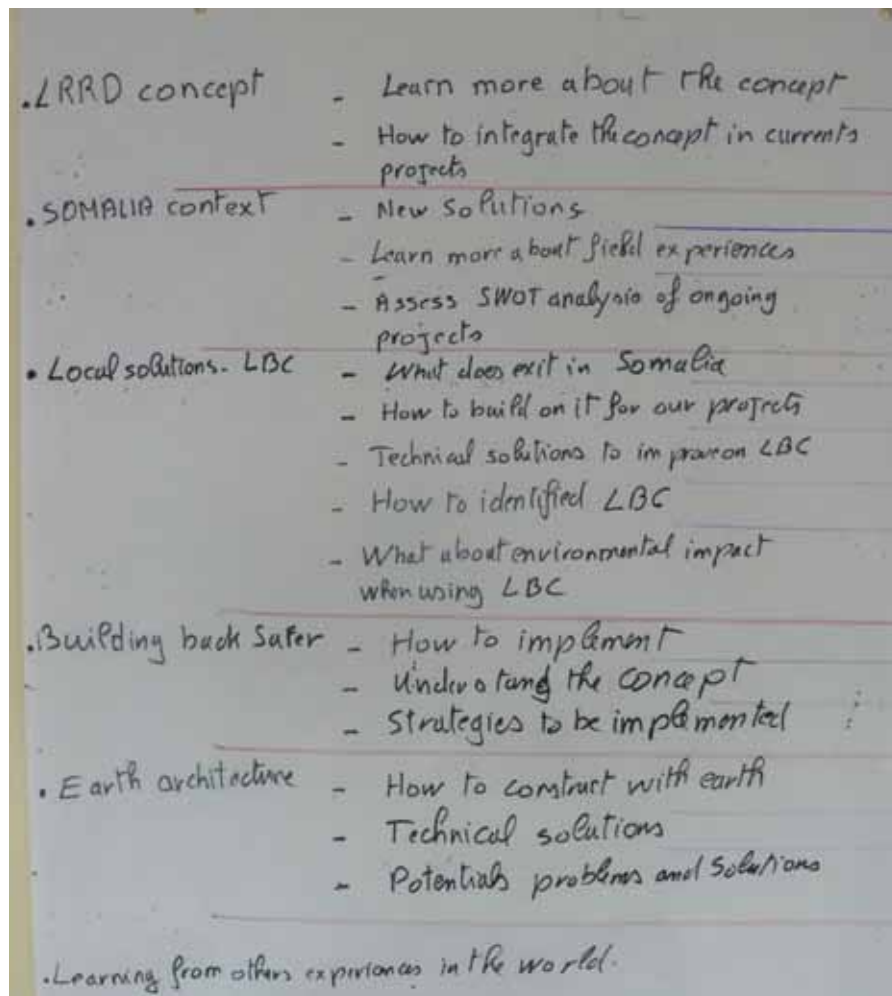 .LRRD concept - Learn more about the concept
- How to integrate the concept in currents
projects
. SOMALIA context - New Solutions
- Learn more about field experiences
- Assess SWOT analysis of ongoing
projects
• Local solutions. LBC - What does exit in Somalia
- How to build on it for our projects
- Technical solutions to improve on LBC
- How to identified LBC
- What about environmental impact
when using LBC
.Building back Safer - How to implement
- Understand the concept
- Strategies to be implemented
. Earth architecture - How to construct with earth
- Technical solutions
- Potentials problems and Solutions
.Learning from others experiences in the world.